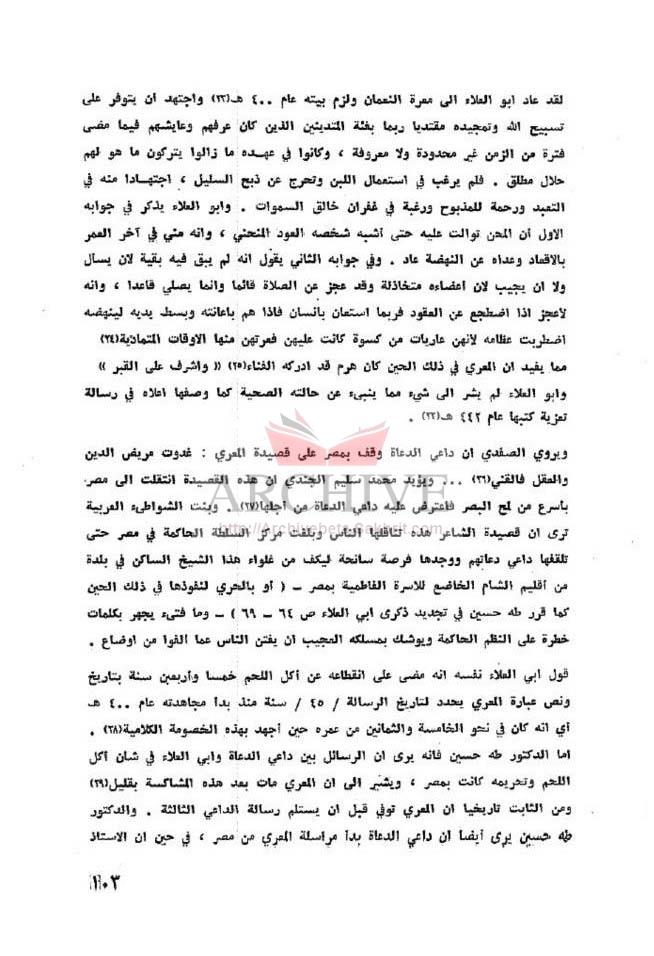 لقد عاد ابو العلاء الى معرة النعمان ولزم بيته عام ٤٠٠ هـ(٢٣) واجتهد ان يتوفر على
تسبيح الله وتمجيده مقتديا ربما بفئة المتدينين الذين كان عرفهم وعايشهم فيما مضى
فترة من الزمن غير محدودة ولا معروفة ، وكانوا في عهـده ما زالوا يتركون ما هو لهم
حلال مطلق . فلم يرغب في استعمال اللبن وتحرج عن ذبح السليل ، اجتهـادا منه في
التعبد ورحمة للمذبوح ورغبة في غفران خالق السموات . وابو العلاء يذكر في جوابه
الاول أن المحن توالت عليه حتى أشبه شخصه العود المنحني ، وانه مني في آخر العمر
بالاقعاد وعداه عن النهضة عاد . وفي جوابه الثاني يقول انه لم يبق فيه بقية لان يسأل
ولا ان يجيب لان اعضاءه متخاذلة وقد عجز عن الصلاة قائما وانما يصلي قاعدا ، وانه
لاعجز اذا اضطجع عن القعود فربما استعان بانسان فاذا هم باعانته وبسط يديه لينهضه
اضطربت عظامه لانهن عاريات من كسوة كانت عليهن فعرتهن منها الاوقات المتمادية(٢٤)
مما يفيد ان المعري في ذلك الحين كان هرم قد ادركه الفناء(٢٥) « واشرف على القبر »
وابو العلاء لم يشر الى شيء مما ينبىء عن حالته الصحية كما وصفها اعلاه في رسالة
تعزية كتبها عام ٤٤٢ هـ(٢٢) .
ويروي الصفدي ان داعي الدعاة وقف بمصر على قصيدة المعري : غدوت مريض الدين
والعقل فالقني(٢٦) ... ويؤيد محمد سليم الجندي ان هذه القصيدة انتقلت الى مصر
بأسرع من لمح البصر فاعترض عليه داعي الدعاة من أجلها(٢٧) . وبنت الشواطىء العربية
ترى ان قصيدة الشاعر هذه تناقلها الناس وبلغت مركز السلطة الحاكمة في مصر حتى
تلقفها داعي دعاتهم ووجدها فرصة سانحة ليكف من غلواء هذا الشيخ الساكن في بلدة
من أقليم الشام الخاضع للاسرة الفاطمية بمصر – ( أو بالحري لنفوذها في ذلك الحين
كما قرر طه حسين في تجديد ذكرى ابي العلاء ص ٦٤ – ٦٩ ) – وما فتىء يجهر بكلمات
خطرة على النظم الحاكمة ويوشك بمسلكه العجيب ان يفتن الناس عما الفوا من اوضاع .
قول ابي العلاء نفسه انه مضى على انقطاعه عن أكل اللحم خمسا وأربعين سنة بتاريخ
ونص عبارة المعري يحدد لتاريخ الرسالة / ٤٥ / سنة منذ بدأ مجاهدته عام ٤٠٠ هـ
أي انه كان في نحو الخامسة والثمانين من عمره حين أجهد بهذه الخصومة الكلامية(٢٨) .
اما الدكتور طه حسين فانه يرى ان الرسائل بين داعي الدعاة وابي العلاء في شان أكل
اللحم وتحريمه كانت بمصر ، ويشير الى ان المعري مات بعد هذه المشاكسة بقليل(٢٩)
وعن الثابت تاريخيا ان المعري توفي قبل ان يستلم رسالة الداعي الثالثة . والدكتور
طه حسين يرى أيضا ان داعي الدعاة بدأ مراسلة المعري من مصر ، في حين ان الاستاذ
ARCHIVE
http://Archivebeta.Sakhrit.com
١٠٣